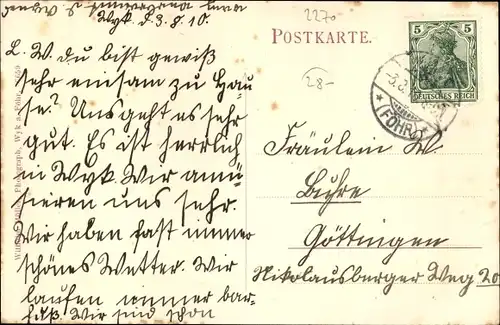 Wyk d. 3.8.10.
L. W. du bist gewiß
sehr einsam zu Hau-
se? Uns geht es sehr
gut. Es ist herrlich
in Wyk. Wir amü-
sieren uns sehr.
Wir haben fast immer
schönes Wetter. Wir
laufen immer bar-
fuß. Wir sind schon
2270
POSTKARTE.
28-
5 5
DEUTSCHES REICH
(FÖHR)
Fräulein W.
Buhre
Göttingen
Nikolausberger Weg 20
Photograph, Wyk a. Föhr.